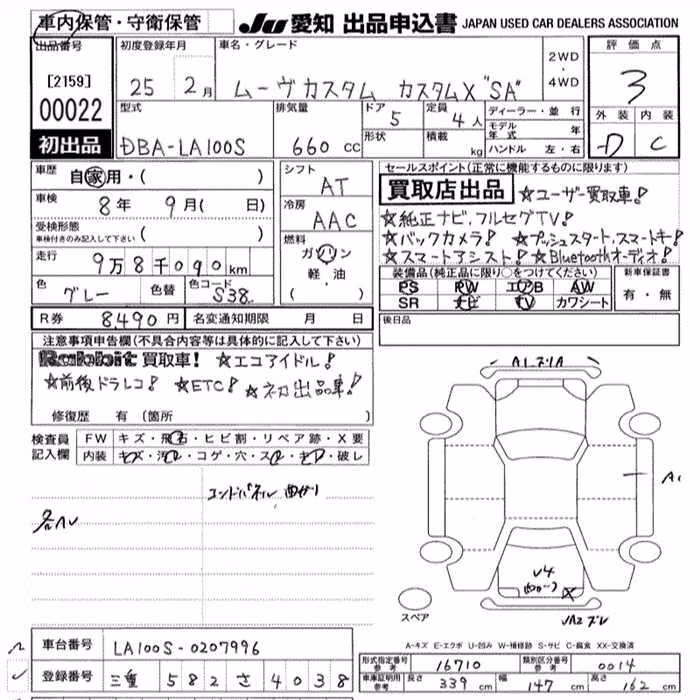 車内保管・守衛保管
JU 愛知 出品申込書 JAPAN USED CAR DEALERS ASSOCIATION
出品番号
[2159]
00022
初出品
初度登録年月
25年 2月
車名・グレード
ムーヴカスタム カスタムX "SA"
2WD
・
4WD
評価点
3
外装 内装
D C
型式
DBA-LA100S
排気量
660 cc
ドア
5
形状
定員
4人
積載
kg
ディーラー・並行
モデル年式 年
ハンドル 左・右
車歴 自家用・( )
車検 8年 9月( 日)
受検形態
車検付きのみ記入して下さい ( )
走行 9万8千090km
色 グレー 色替 色コード S38
シフト
AT
冷房
AAC
燃料
ガソリン
軽・油
( )
セールスポイント(正常に機能するものに限ります)
買取店出品 ☆ユーザー買取車!
☆純正ナビ・フルセグTV!
☆バックカメラ! ☆プッシュスタート、スマートキー!
☆スマートアシスト! ☆Bluetoothオーディオ!
装備品(純正品に限り○をつけてください)
PS PW エアB AW
SR ナビ TV カワシート
新車保証書
有・無
R券 8,490円 名変通知期限 月 日
後日品
注意事項申告欄(不具合内容等は具体的に記入して下さい)
Rabbit 買取車! ☆エコアイドル!
☆前後ドラレコ! ☆ETC! ☆初出品車!
修復歴 有(箇所 )
検査員記入欄
FW キズ・飛石・ヒビ割・リペア跡・X要
内装 キズ・汚れ・コゲ・穴・スレ・キレ・破レ
エンドパネル 曲がり
各AU
A1
U4
X
スペア
A-キズ E-エクボ U-凹み W-補修跡 S-サビ C-腐食 XX-交換済
車台番号 LA100S-0207996
登録番号 三重 582 さ 4038
型式指定番号
参考 16710
類別区分番号
参考 0014
車庫証明用
参考 長さ 339cm 幅 147cm 高さ 162cm